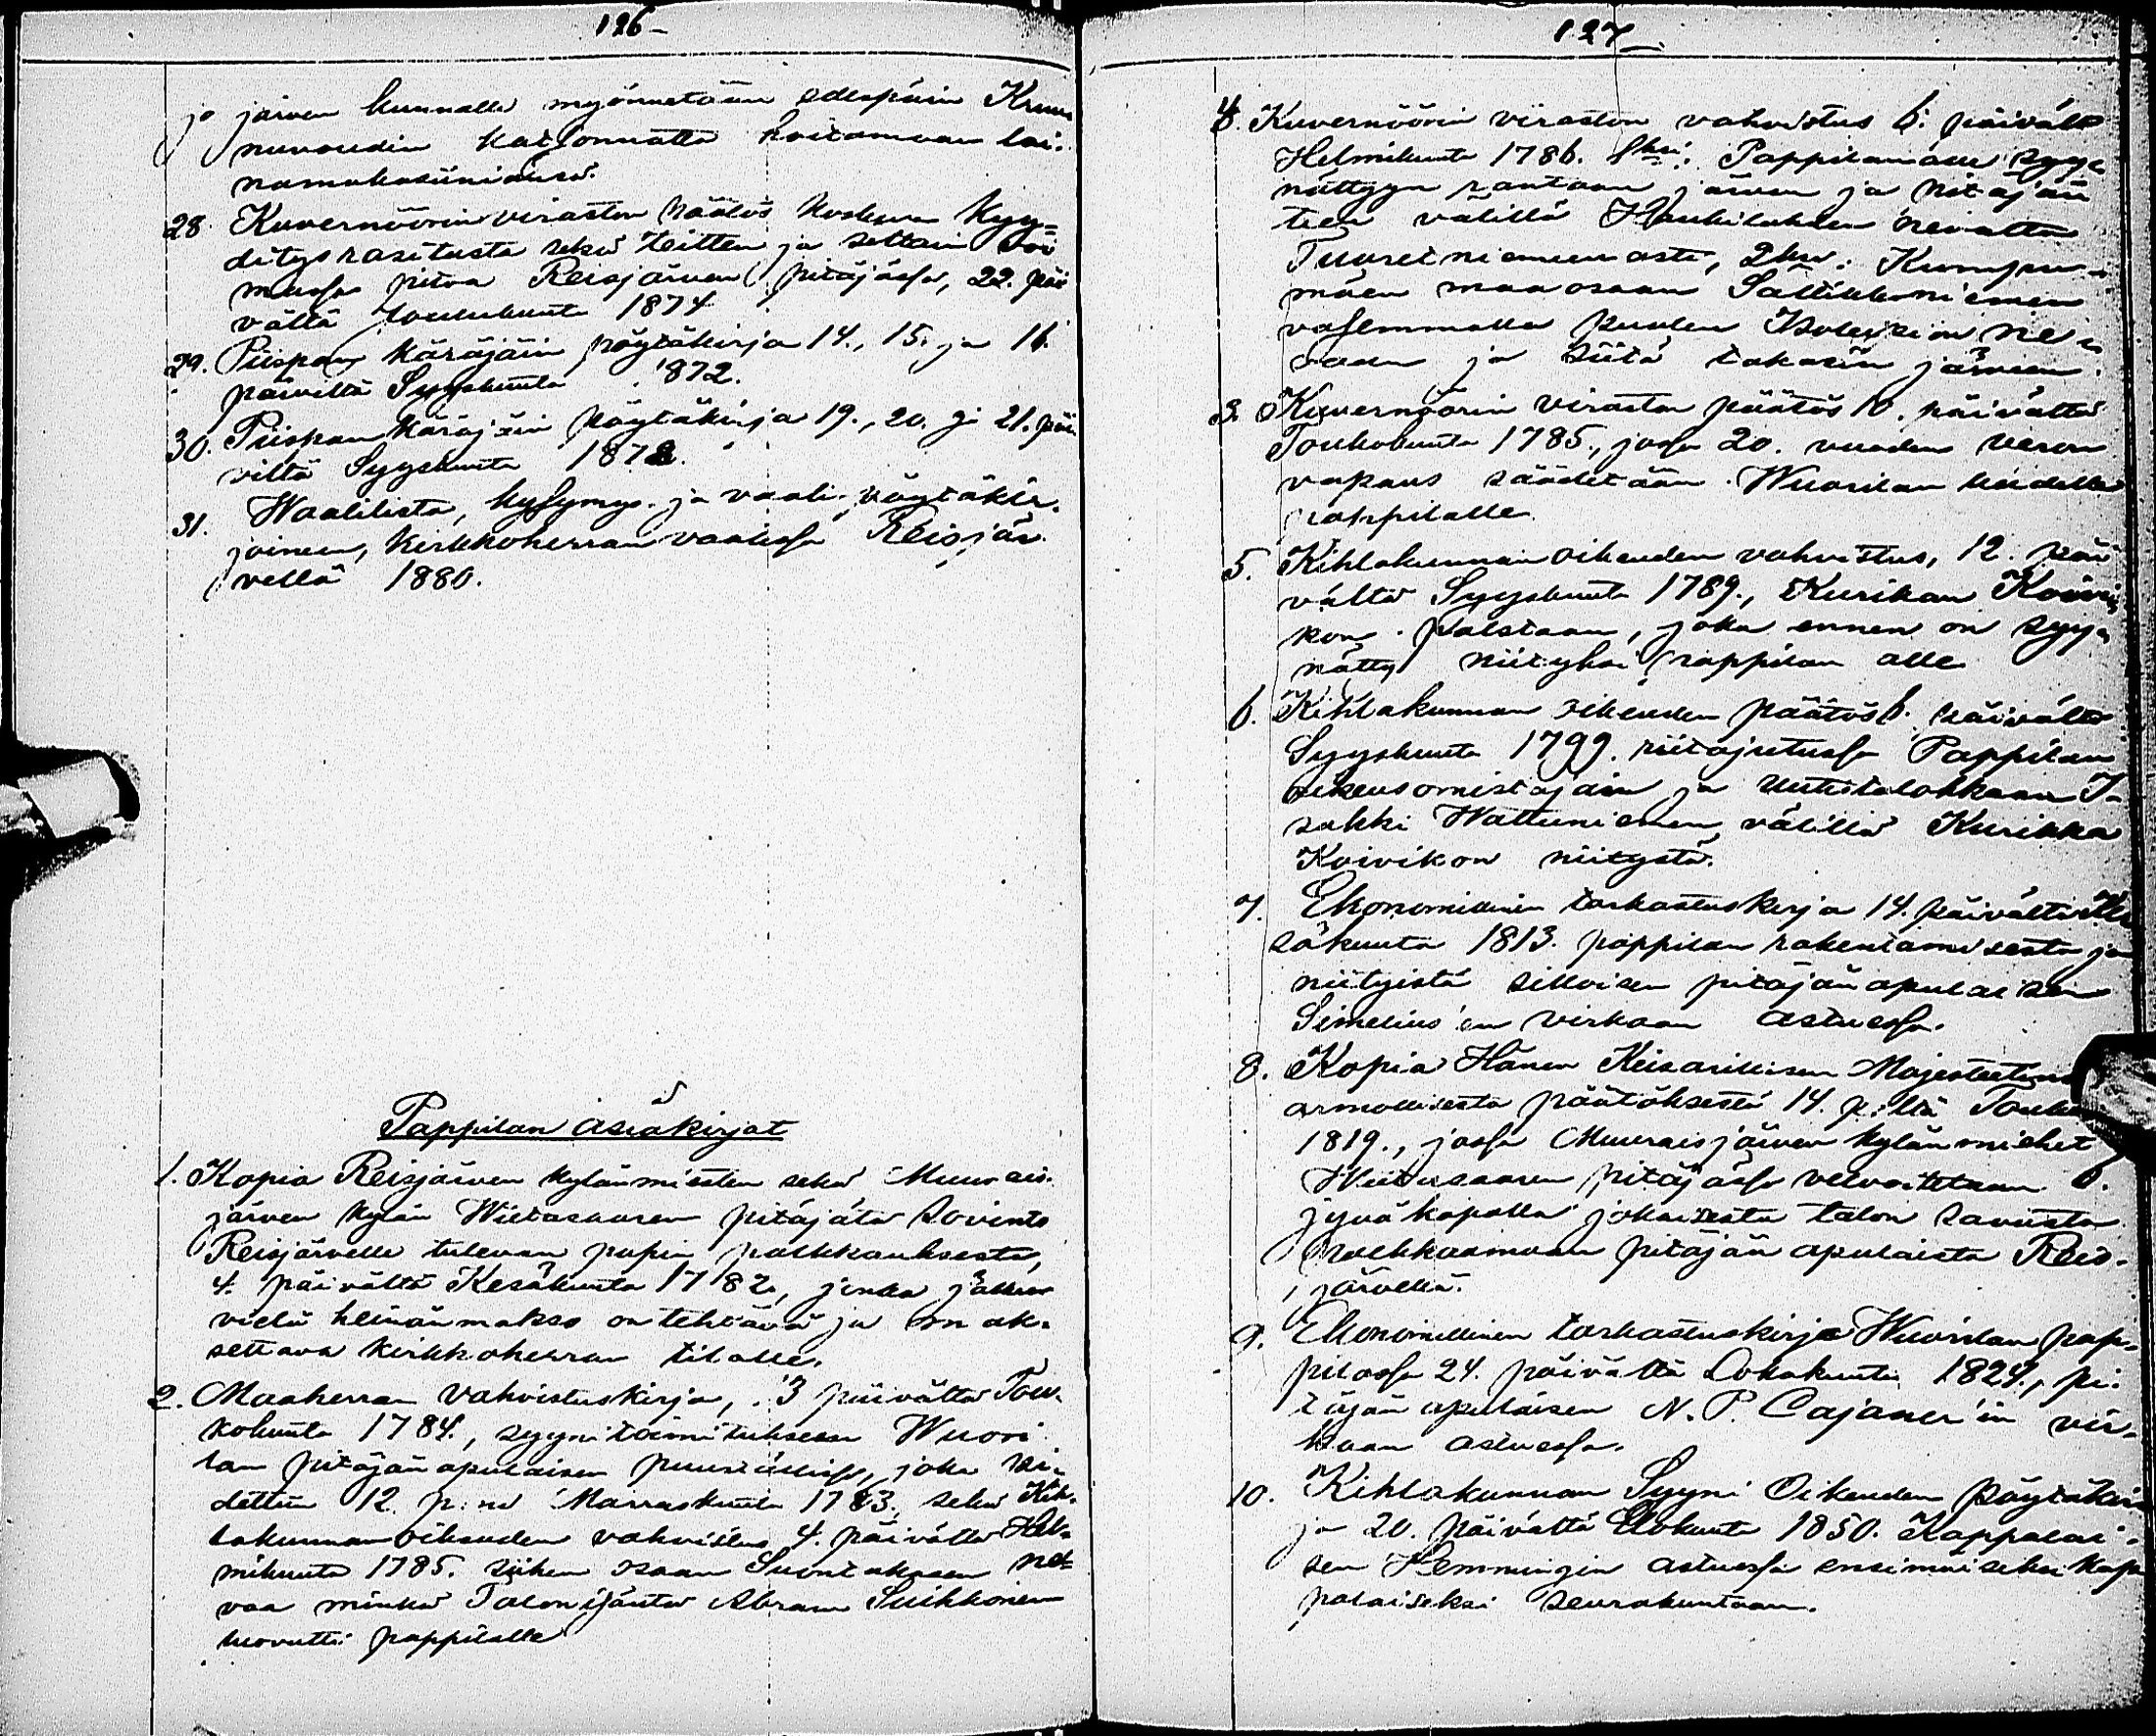 126-
järven kunnalle myönnetään edespäin Kruu
nunvoudin katsonnatta hoitamaan lai-
namakasiiniansa.
28. Kuvernöörinviraston päätös koskeva kyy=
ditys rasitusta sekä teitten ja siltain voi
massa pitoa Reisjärven pitäjässä, 22. päi
vältä Joulukuuta 1874
29. Piispan käräjäin pöytäkirja 14., 15. ja 16.
päiviltä Syyskuuta 1872.
30. Piispan käräjäin pöytäkirja 19., 20. ja 21. päi
viltä Syyskuuta
31. Waalilista, kysymys- ja vaali-pöytäkir-
joineen, kirkkoherran vaalissa Reisjär-
vellä 1880.
Pappilan asiakirjat
1. Kopia Reisjärven kylänmiesten sekä Muurais-
järven kylän Wiitasaaren pitäjätä sovinto
Reisjärvelle tulevan papin palkkauksesta,
4. päivältä Kesäkuuta 1782, jonka jälkeen
vielä heinänmakso on tehtävä ja
settava kirkkoherran tilalle.
2. Maaherran vahvistuskirja, 3 päivältä Tou-
kokuuta 1784., syynitoimitukseen Wuori
lan pitäjänapulaisen puustellissa, joka pi-
dettiin 12. p:nä Marraskuuta 1783. sekä Kih-
lakunnan oikeuden vahvistus 4. päivältä Hel-
mikuuta 1785. siihen osaan Suontakasen ne-
vaa minkä Talon isäntä Abram Suikkonen
luovutti pappilalle
127
Kuvernöörin viraston vahvistus 6. päivältä
Helmikuuta 1786. 1ksi: Pappilan alle syy-
nättyyn rantaan järven ja pitäjän
tien välillä Haukilahden nevalta
niemeen asti, 2ksi:
mäen maa osaan Sällikköniemen
vasemmalla puolen ne-
vaan ja siitä takasin järveen.
3. Kuvernöörin viraston päätös 10. päivältä
Toukokuuta 1785., jossa 20. vuoden veron
vapaus säädetään Wuorilan uudelle
pappilalle
5. Kihlakunnan oikeuden vahvistus, 12. päi
vältä Syyskuuta 1789., Kurikan Koivi-
kon palstaan, joka ennen on syy-
nätty niityksi pappilan alle
6. Kihlakunnan oikeuden päätös 6. päivältä
Syyskuuta 1799. riitajutussa Pappilan
oikeusomistajain ja uutistalokkaan I-
sakki Wattuniemen välillä Kurikka
Koivikon niitystä.
7. Ekonomillinen tarkastuskirja 14. päivältä Ke
säkuuta 1813. pappilan rakentamisesta ja
niityistä silloisen pitäjänapulaisen
Simelius'en virkaan astuessa.
8. Kopia Hänen Keisarillisen Majesteetinsa
armollisesta päätöksestä 14. p:ltä Touko
1819., jossa Muuraisjärven kylänmiehet
Wiitasaaren pitäjässä velvoitetaan 6.
jyväkapalla jokaisesta talon savusta
palkkaamaan pitäjän apulaista Reis-
järvellä.
9. Ekonomillinen tarkastuskirja Wuorilan pap-
pilassa 24. päivältä Lokakuuta 1824., pi-
täjän apulaisen N. P. Cajaner'in vir-
kaan astuessa.
10. Kihlakunnan Syyni Oikeuden pöytäkir
ja 20. päivältä Elokuuta 1850. Kappalai-
sen Hemmingin astuessa ensimäiseksi kap
palaiseksi seurakuntaan.